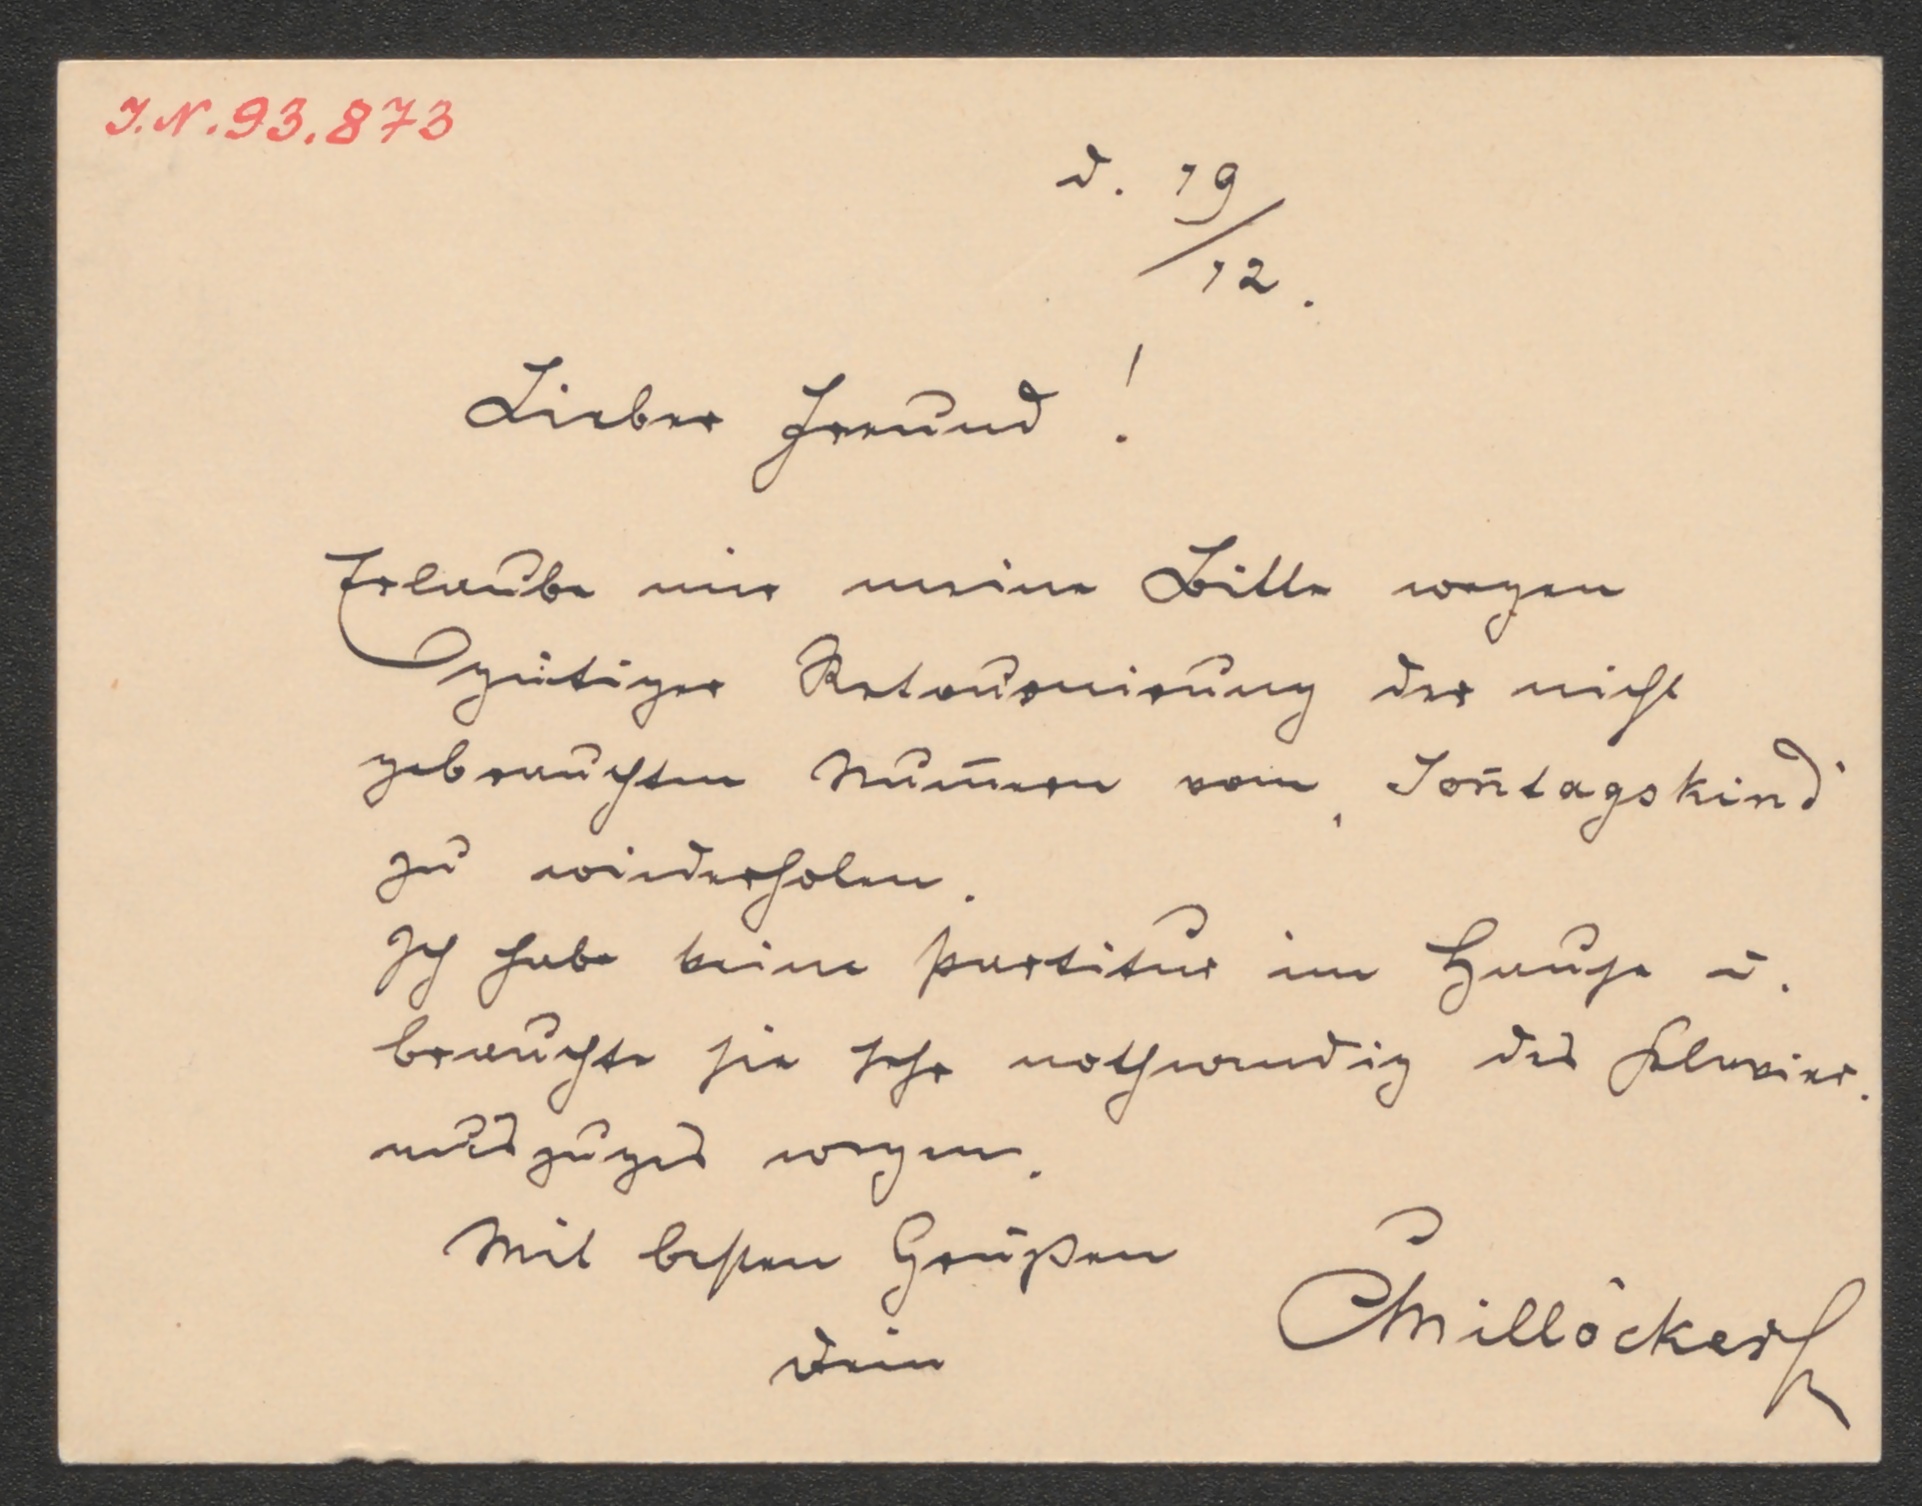 I.N. 93.873
d. 19/12.
Lieber Freund!
Erlaube mir meine Bitte wegen
gütiger Retournirung der nicht
gebrauchten Num̄ern vom ‚Son̄tagskind‘
zu wiederholen.
Ich habe keine Partitur im Hause u.
brauchte sie sehr nothwendig des Klavier-
auszuges wegen.
Mit besten Grüßen
Dein
CMillöcker